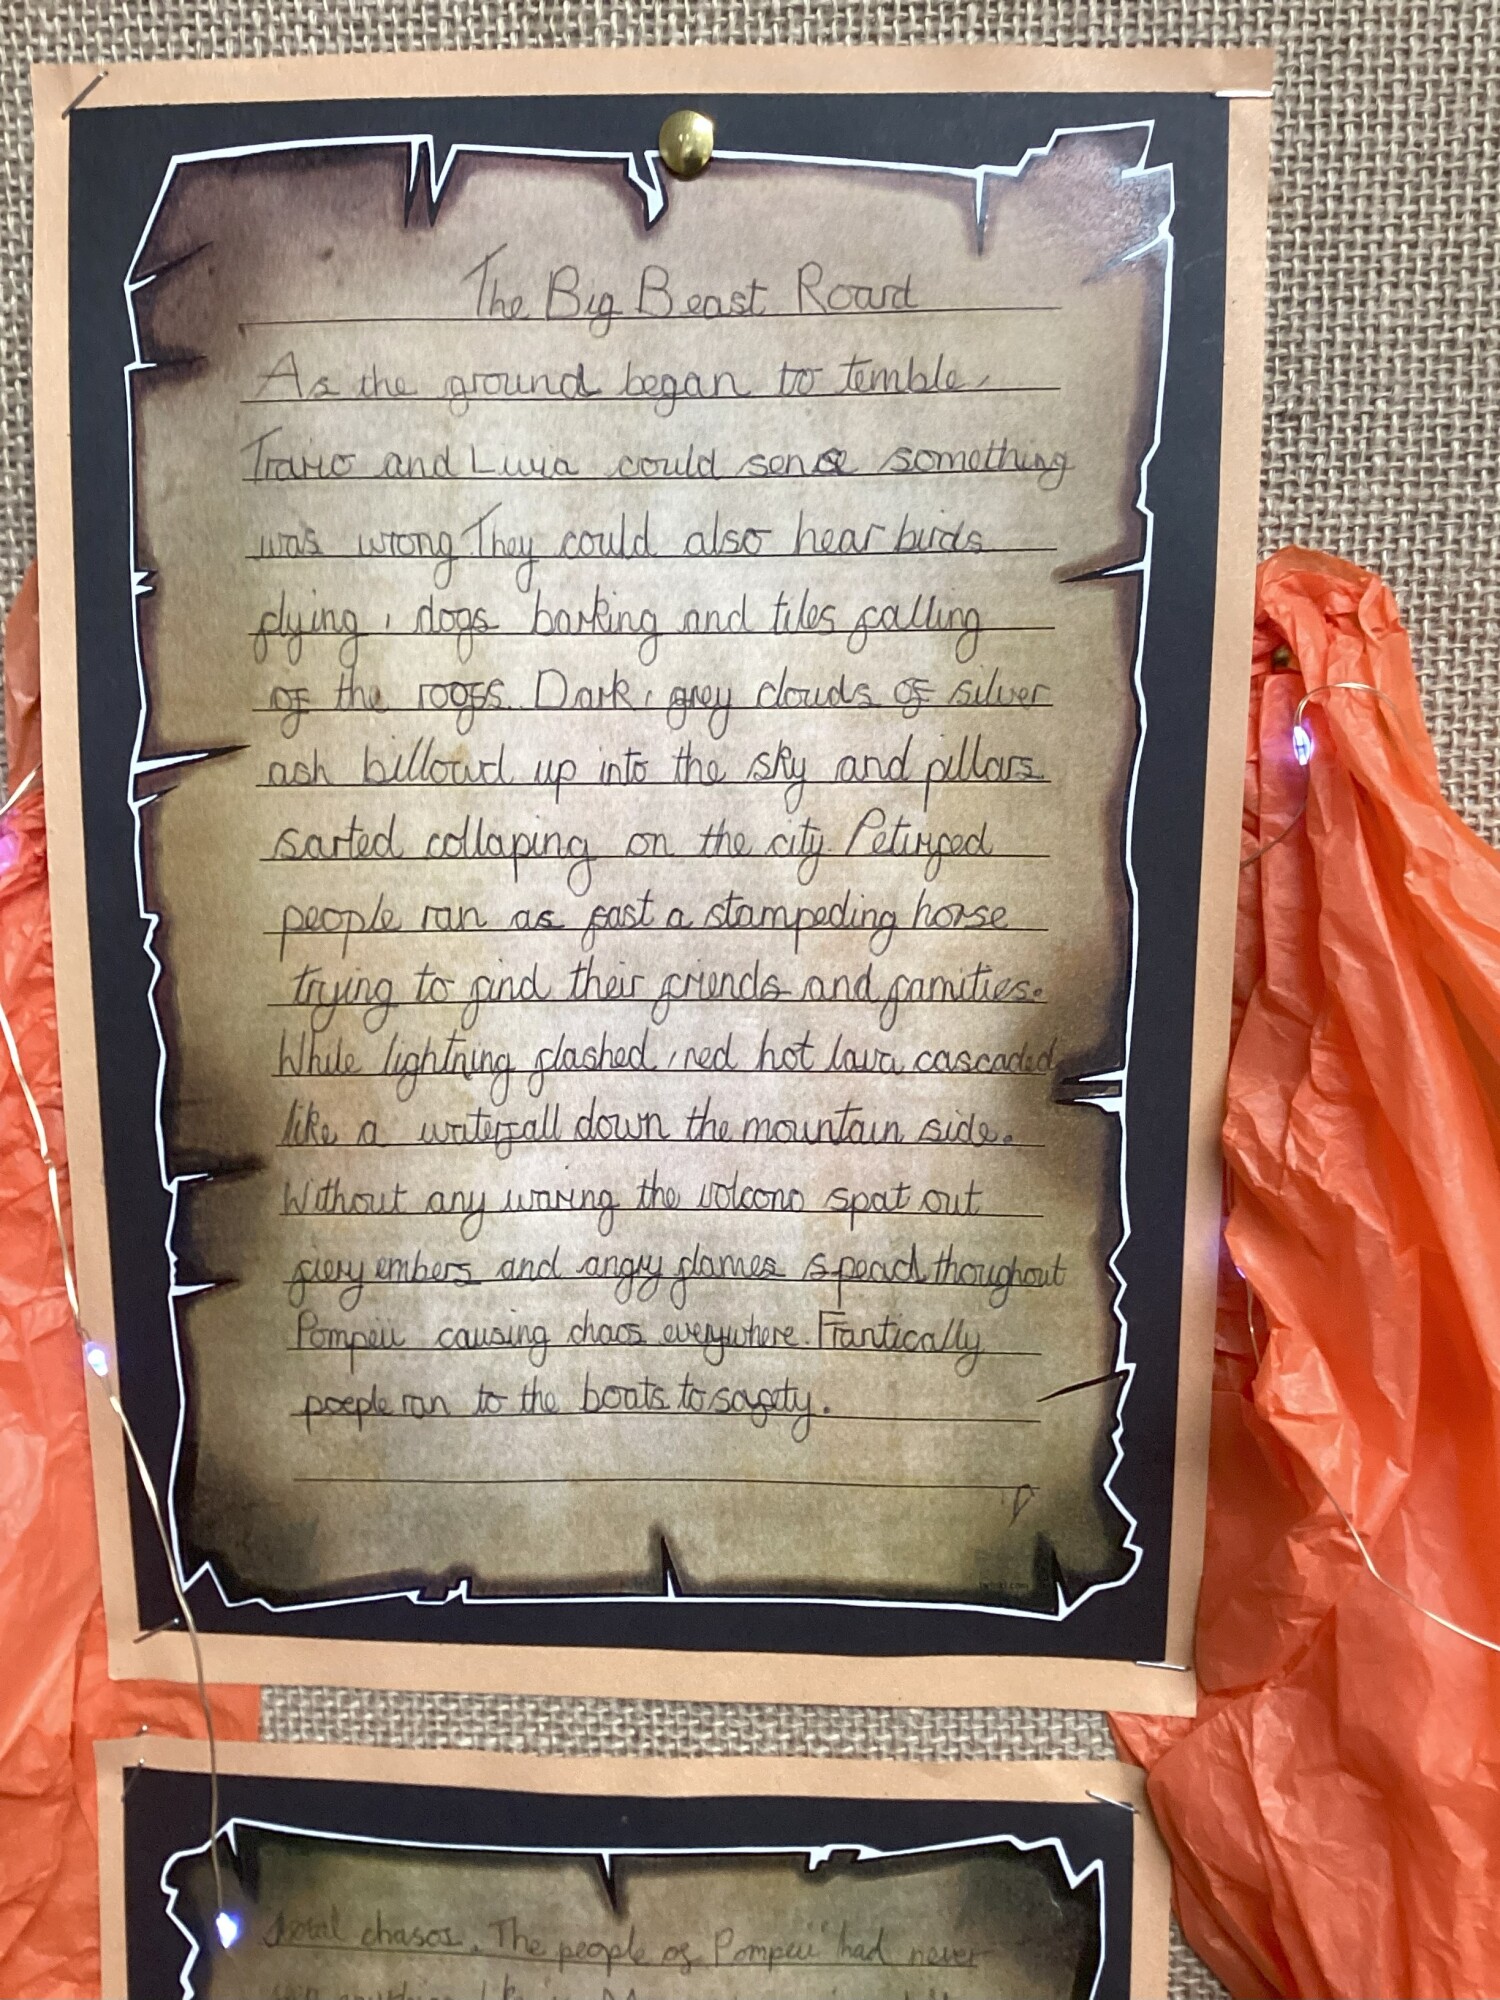 The Big Beast Roard
As the ground began to temble,
and Livia could sense something
was wrong. They could also hear birds
flying, dogs barking and tiles falling
of the roofs. Dark, grey clouds of silver
ash billowd up into the sky and pillars
sarted collaping on the city.
people ran as fast a stampeding horse
trying to find their friends and families.
While lightning flashed, red hot lava cascaded
like a waterfall down the mountain side.
Without any waring the volcono spat out
fiery embers and angry flames spead thoughout
Pompeii causing chaos everywhere. Frantically
poeple ran to the boats to safety.
chasos. The people of Pompeii had never